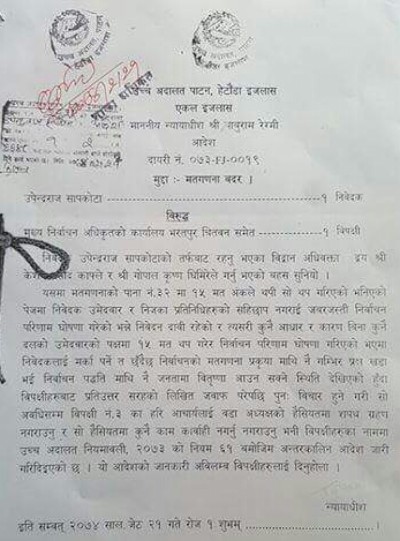 उच्च अदालत पाटन, हेटौंडा इजलास
एकल इजलास
माननीय न्यायाधीश श्री बाबुराम रेग्मी
आदेश
दायरी नं. ०७३-FJ-००१९
मुद्दा :- मतगणना बदर ।
उपेन्द्रराज सापकोटा १ निवेदक
विरुद्ध
मुख्य निर्वाचन अधिकृतको कार्यालय भरतपुर चितवन समेत १ विपक्षी
निवेदक उपेन्द्रराज सापकोटाको तर्फबाट रहनु भएका विद्वान अधिवक्ता द्वय श्री
काफ्ले र श्री गोपाल कृष्ण घिमिरेले गर्नु भएको बहस सुनियो ।
यसमा मतगणनाको पाना नं.३२ मा १५ मत अंकले थपी सो थप गरिएको भनिएको
पेजमा निवेदक उमेदवार र निजका प्रतिनिधिहरुको सहिछाप नगराई जबरजस्ती निर्वाचन
परिणाम घोषणा गरेको भन्ने निवेदन दावी रहेको र त्यसरी कुनै आधार र कारण विना कुनै
दलको उमेदवारको पक्षमा १५ मत थप गरेर निर्वाचन परिणाम घोषणा गरिएको भएमा
निवेदकलाई मर्का पर्ने त छँदैछ निर्वाचनको मतगणना प्रकृया माथि नै गम्भिर प्रश्न खडा
भई निर्वाचन पद्धति माथि नै जनतामा वितृष्णा आउन सक्ने स्थिति देखिएको हुँदा
विपक्षीहरुबाट प्रतिउत्तर सरहको लिखित जवाफ परेपछि पुनः विचार हुने गरी सो
अवधिसम्म विपक्षी नं.३ का हरि आचार्यलाई वडा अध्यक्षको हैसियतमा शपथ ग्रहण
नगराउनु र सो हैसियतमा कुनै काम कार्वाही नगर्नु नगराउनु भनी विपक्षीहरुका नाममा
उच्च अदालत नियमावली, २०७३ को नियम ६१ बमोजिम अन्तरकालिन आदेश जारी
गरिदिइएको छ । यो आदेशको जानकारी अबिलम्ब विपक्षीहरुलाई दिनुहोला ।
न्यायाधीश
इति सम्बत् २०७४ साल जेठ २१ गते रोज १ शुभम्